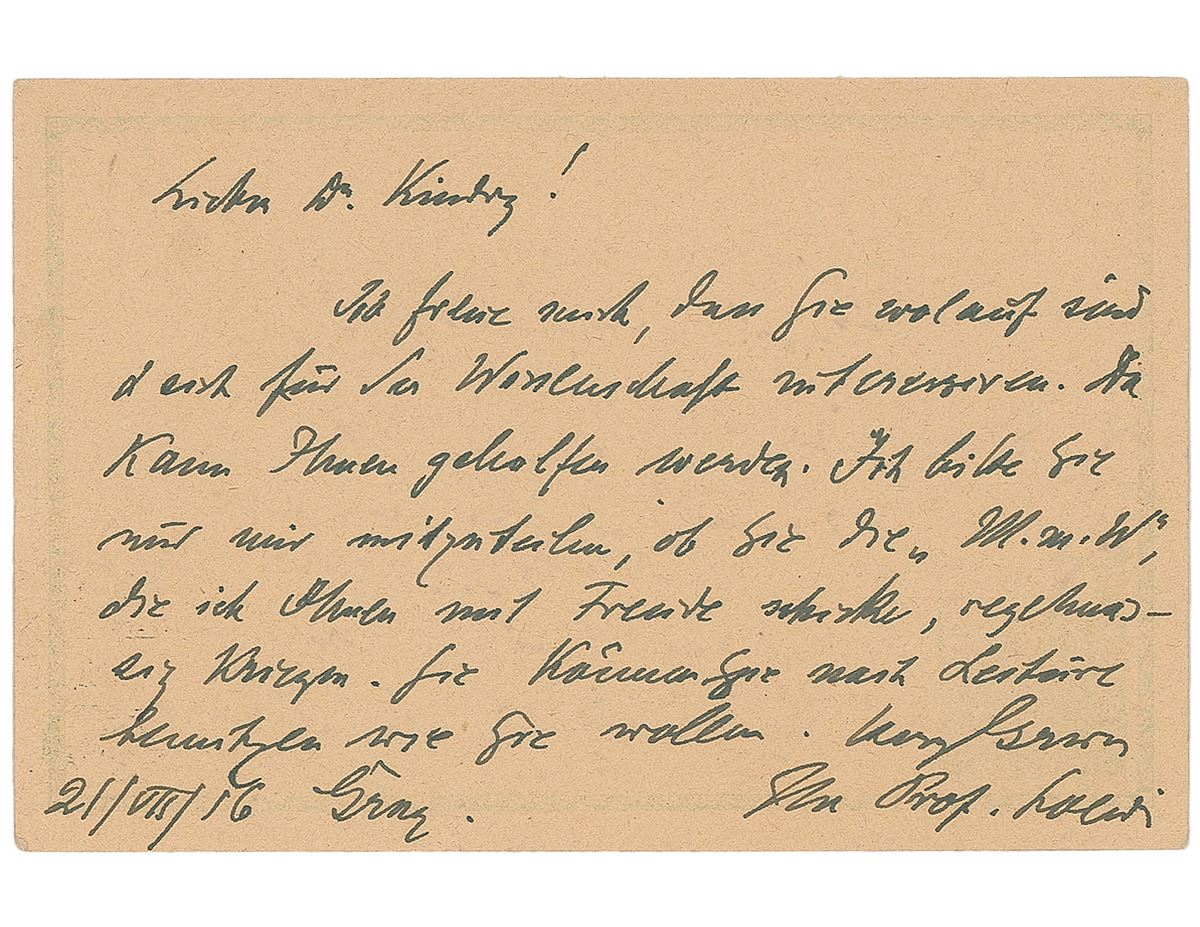 Lieber Dr. Kindry!
Ich freue mich, dass Sie wolauf sind
& sich für die Wissenschaft interessiren. Da
kann Ihnen geholfen werden. Ich bitte Sie
nur mir mitzuteilen, ob Sie die „M.m.W“,
die ich Ihnen mit Freude schicke, regelmäs-
sig kriegen. Sie können sie nach Lectüre
benützen wie Sie wollen.
21/VIII/16 Graz. Ihr Prof. Loewi